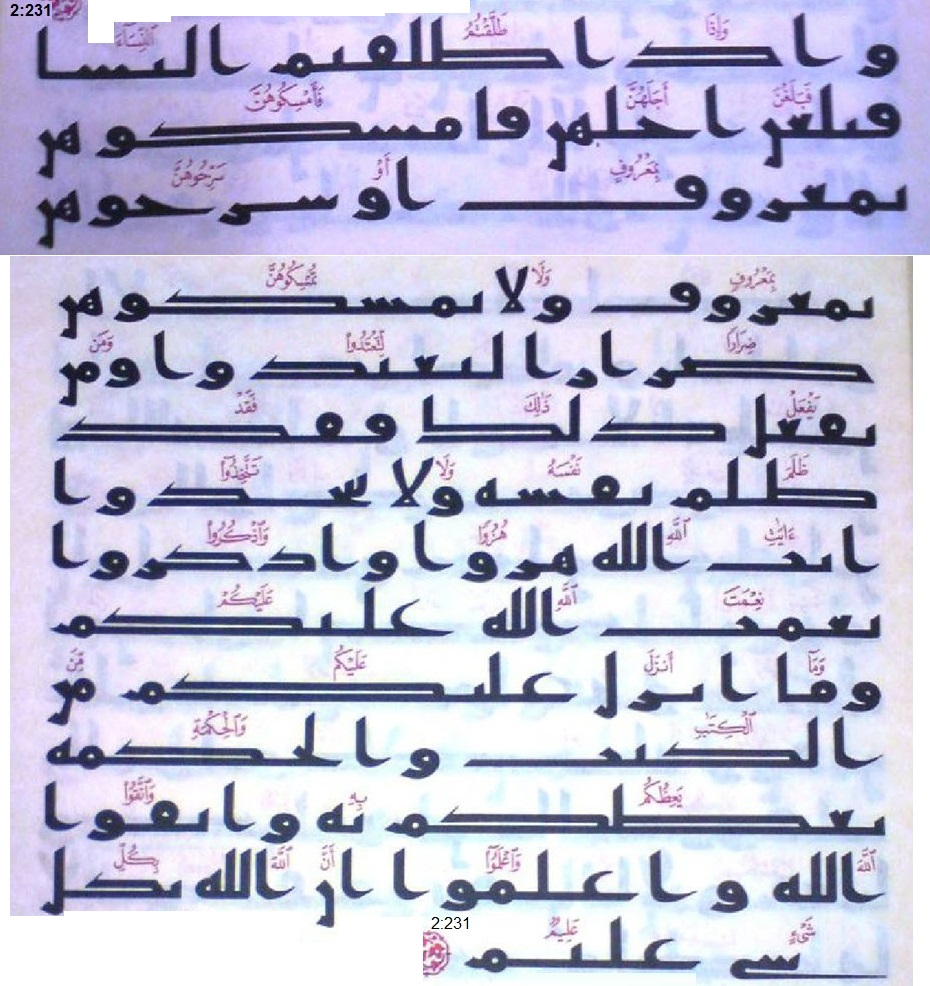 2:231
وَإِذَا طَلَّقْتُمُ النِّسَآءَ
و اذا طلقتم النسا
فَبَلَغْنَ أَجَلَهُنَّ فَأَمْسِكُوهُنَّ
فبلغن اجلهن فامسكوهن
بِمَعْرُوفٍ أَوْ سَرِّحُوهُنَّ
بمعروف او سرحوهن
بِمَعْرُوفٍ وَلَا تُمْسِكُوهُنَّ
بمعروف ولا تمسكوهن
ضِرَارًا لِّتَعْتَدُوا۟ وَمَن
ضرارا لتعتدوا ومن
يَفْعَلْ ذَٰلِكَ فَقَدْ
يفعل ذلك فقد
ظَلَمَ نَفْسَهُ وَلَا تَتَّخِذُوٓا۟
ظلم نفسه ولا تتخذوا
ءَايَٰتِ ٱللَّهِ هُزُوًا وَٱذْكُرُوا۟
ايت الله هزوا واذكروا
نِعْمَتَ ٱللَّهِ عَلَيْكُمْ
نعمت الله عليكم
وَمَآ أَنزَلَ عَلَيْكُم مِّنَ
وما انزل عليكم من
ٱلْكِتَٰبِ وَٱلْحِكْمَةِ
الكتب والحكمه
يَعِظُكُم بِهِۦ وَٱتَّقُوا۟
يعظكم به واتقوا
ٱللَّهَ وَٱعْلَمُوٓا۟ أَنَّ ٱللَّهَ بِكُلِّ
الله واعلموا ان الله بكل
2:231
شَىْءٍ عَلِيمٌ
شي عليم